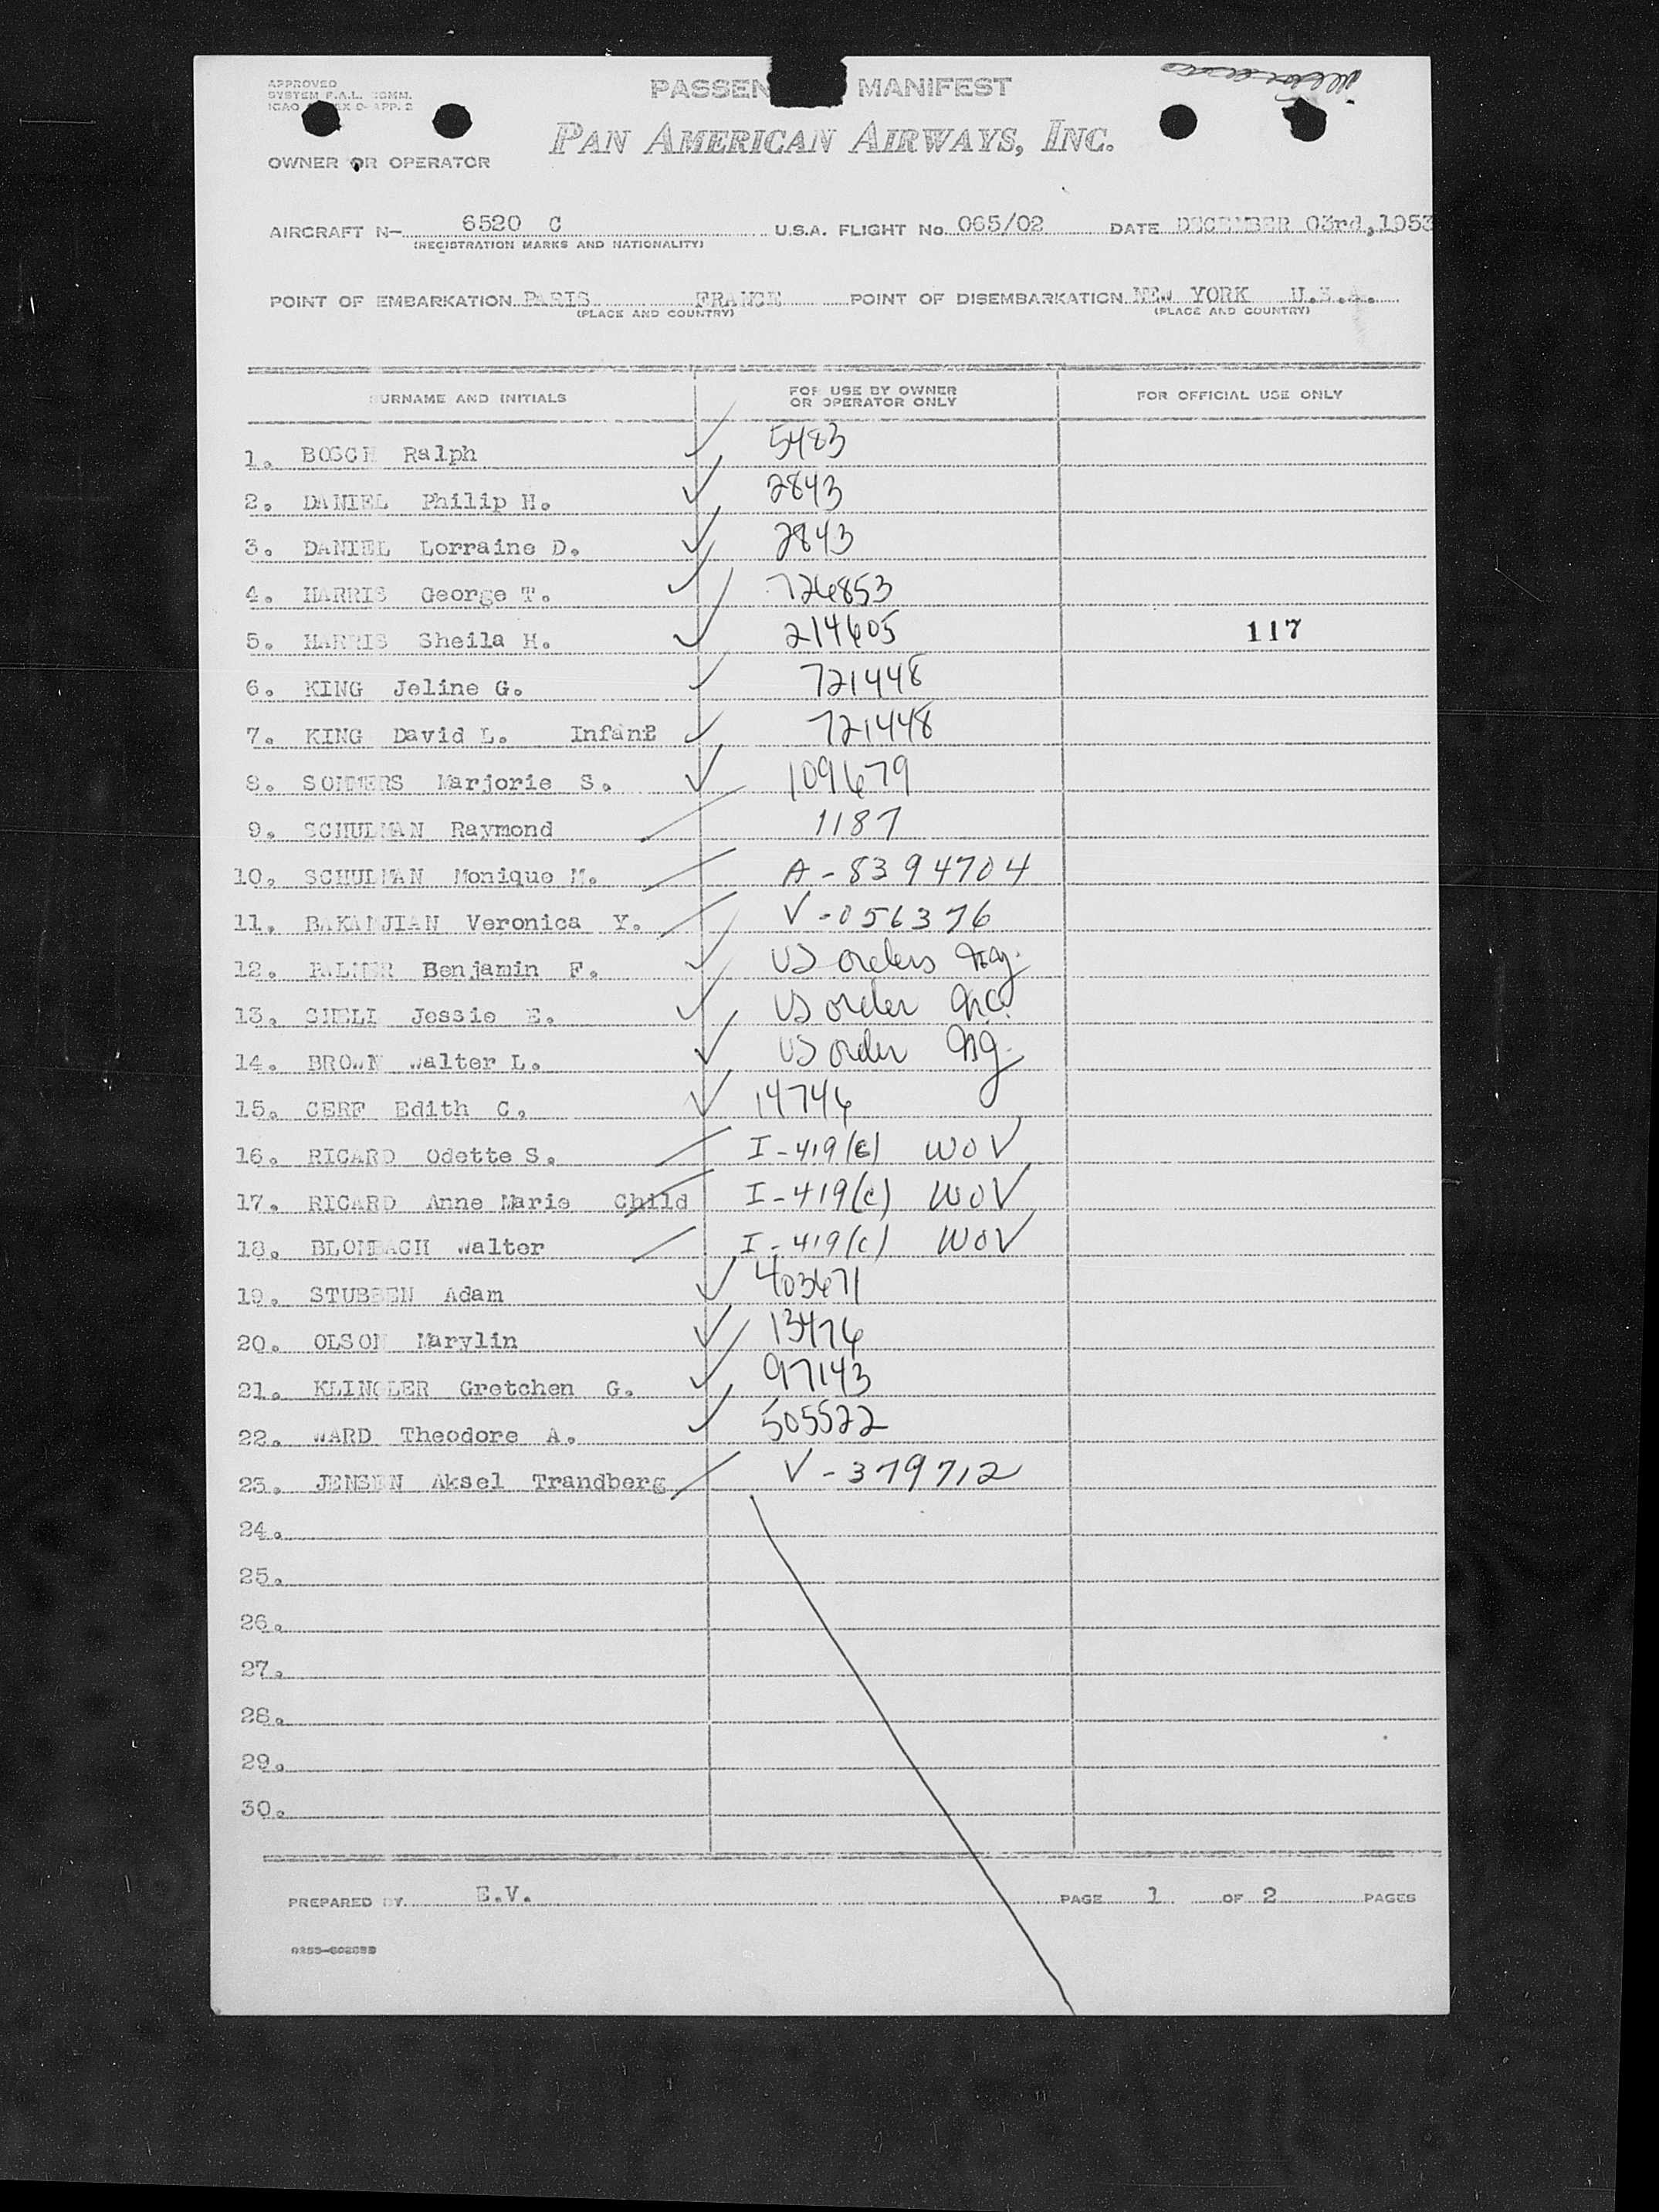 APPROVED
SYSTEM F.A.L. COMM.
ICAO APP. 2
PASSEN MANIFEST
PAN AMERICAN AIRWAYS, INC.
OWNER OR OPERATOR
AIRCRAFT N- 6520 C U.S.A. FLIGHT No. 065/02 DATE DECEMBER 03rd, 1953
(REGISTRATION MARKS AND NATIONALITY)
POINT OF EMBARKATION PARIS FRANCE POINT OF DISEMBARKATION NEW YORK U.S.A.
(PLACE AND COUNTRY) (PLACE AND COUNTRY)
SURNAME AND INITIALS FOR USE BY OWNER OR OPERATOR ONLY FOR OFFICIAL USE ONLY
1. BOSCH Ralph ✓ 5483
2. DANIEL Philip H. ✓ 2843
3. DANIEL Lorraine D. ✓ 2843
4. HARRIS George T. ✓ 726853
5. HARRIS Sheila H. ✓ 214605 117
6. KING Jeline G. ✓ 721448
7. KING David L. Infant ✓ 721448
8. SOMMERS Marjorie S. ✓ 109679
9. SCHULMAN Raymond 1187
10. SCHULMAN Monique M. A-8394704
11. BAKANJIAN Veronica Y. V-056376
12. PALMER Benjamin F. ✓ US orders
13. SHELL Jessie E. ✓ US order
14. BROWN Walter L. ✓ US order
15. CERF Edith C. ✓ 14746
16. RICARD Odette S. I-419(c) WOV
17. RICARD Anne Marie Child I-419(c) WOV
18. BLOMBACH Walter I-419(c) WOV
19. STUBBEN Adam ✓ 403671
20. OLSON Marylin ✓ 13476
21. KLINGLER Gretchen G. ✓ 97143
22. WARD Theodore A. ✓ 505522
23. JENSEN Aksel Trandberg V-379712
24.
25.
26.
27.
28.
29.
30.
PREPARED BY E.V. PAGE 1 OF 2 PAGES